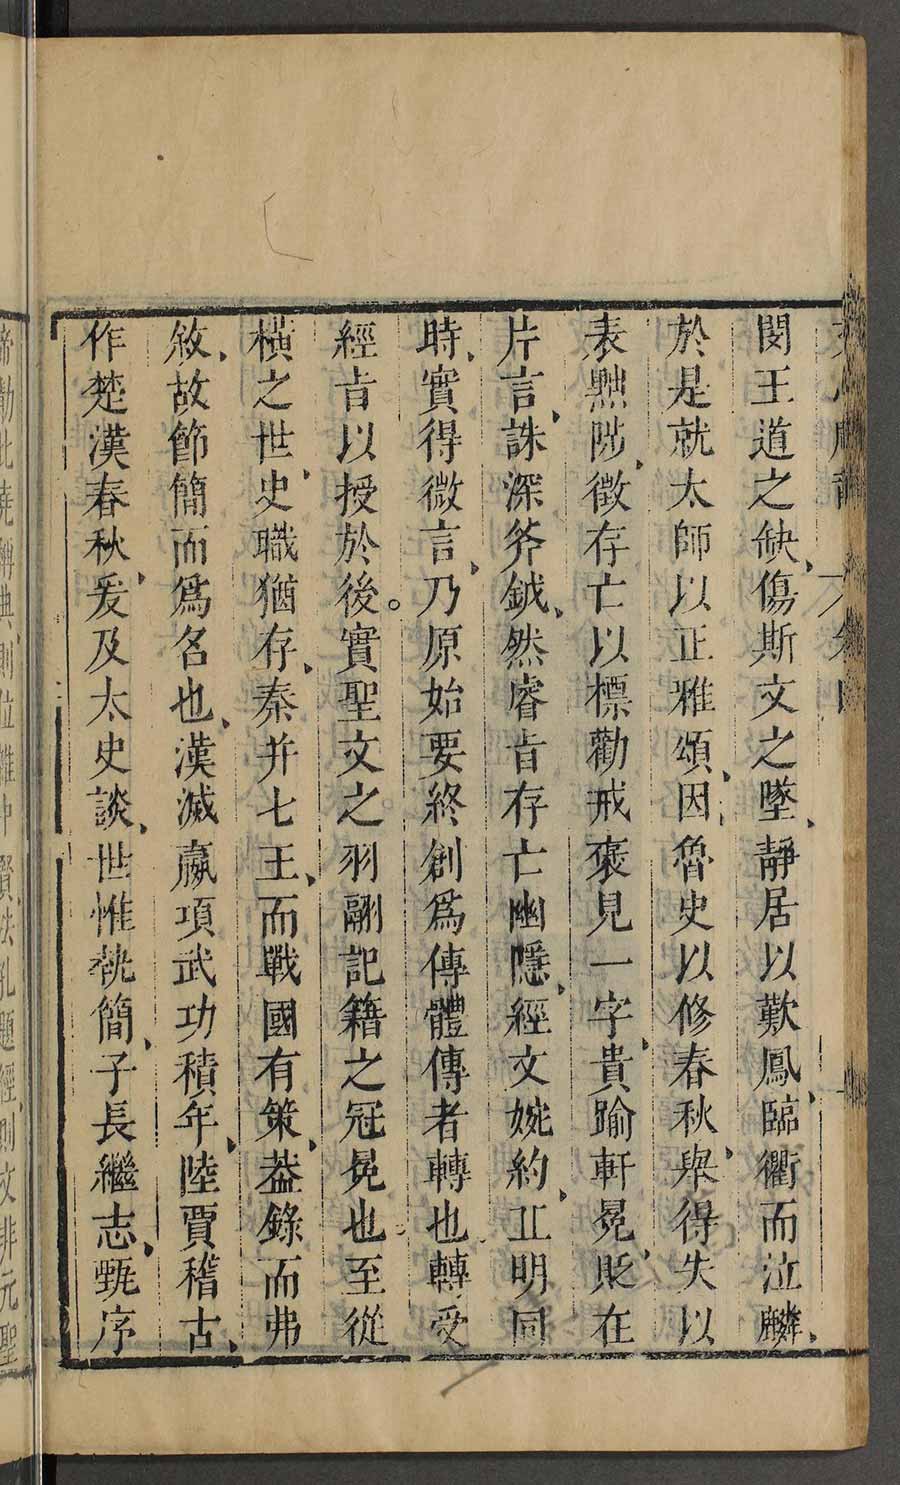 閔王道之缺、傷斯文之墜、靜居以歎鳳、臨衢而泣麟、
於是就太師以正雅頌、因魯史以修春秋、舉得失以
表黜陟、徵存亡以標勸戒褒見一字、貴踰軒冕、貶在
片言、誅深斧鉞、然睿旨存亡幽隱、經文婉約、丘明同
時、實得微言、乃原始要終創爲傳體傳者轉也、轉受
經旨以授於後。實聖文之羽翮記籍之冠冕也、至從
橫之世、史職猶存、秦并七王、而戰國有策、葢錄而弗
敘、故節簡而爲名也、漢滅嬴項武功積年、陸賈稽古、
作楚漢春秋、爰及太史談、世惟執簡、子長繼志、甄序